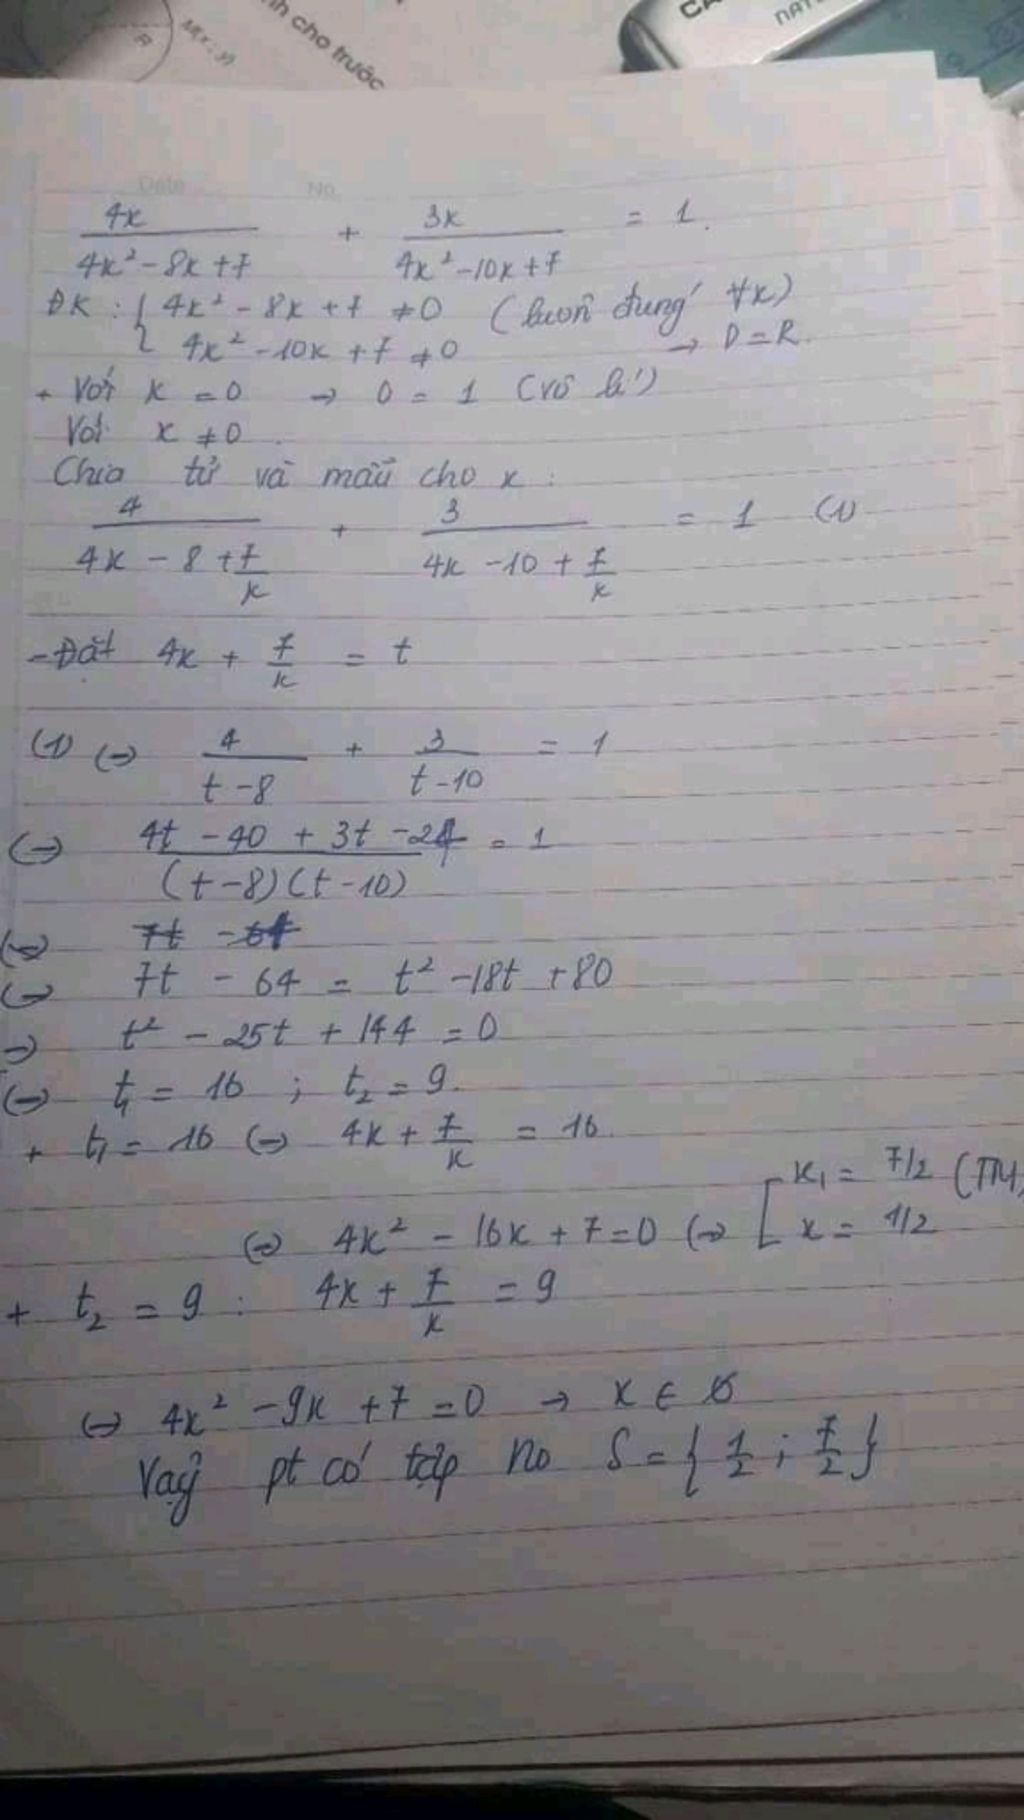 nh cho trước
M(x; y)
CA
NAT
Date No.
4x/(4x² - 8x + 7) + 3x/(4x² - 10x + 7) = 1.
ĐK : { 4x² - 8x + 7 ≠ 0 (luôn đúng ∀x)
4x² - 10x + 7 ≠ 0 → D = R.
+ Với x = 0 → 0 = 1 (vô lí)
Với x ≠ 0.
Chia tử và mẫu cho x :
4/(4x - 8 + 7/x) + 3/(4x - 10 + 7/x) = 1 (1)
- Đặt 4x + 7/x = t
(1) (=) 4/(t - 8) + 3/(t - 10) = 1
(=) (4t - 40 + 3t - 24)/((t - 8)(t - 10)) = 1
(=) 7t - 64
(=) 7t - 64 = t² - 18t + 80
=) t² - 25t + 144 = 0
(=) t₁ = 16 ; t₂ = 9.
+ t₁ = 16 (=) 4x + 7/x = 16
(=) 4x² - 16x + 7 = 0 (=) [ x₁ = 7/2 (TM)
x = 1/2
+ t₂ = 9 : 4x + 7/x = 9
(=) 4x² - 9x + 7 = 0 → x ∈ ∅
Vậy pt có tập no S = { 1/2 ; 7/2 }